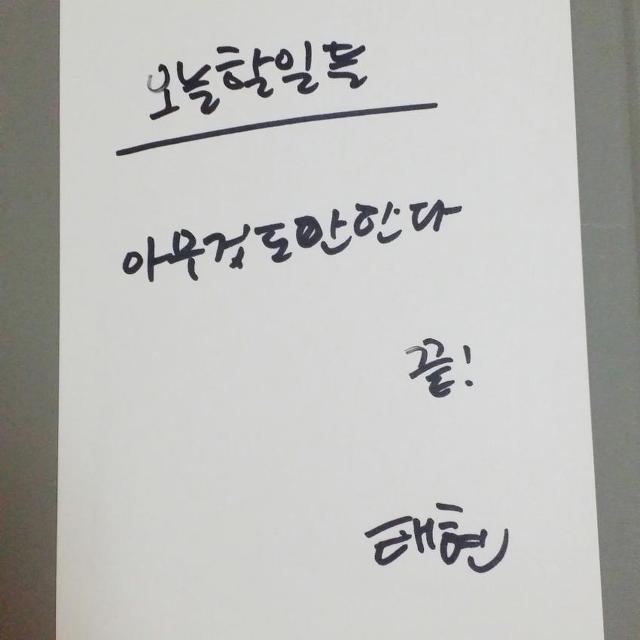 오늘할일들
아무것도안한다
끝!
태현